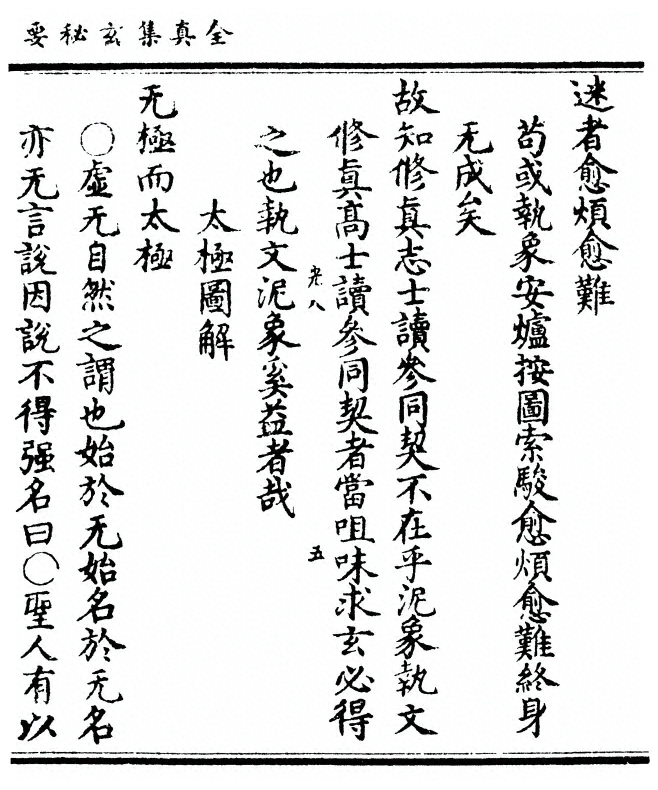 全真集玄秘要
迷者愈煩愈難
苟或執象安爐按圖索駿愈煩愈難終身
无成矣
故知修真志士讀參同契不在乎泥象執文
修真高士讀參同契者當咀味求玄必得
老八
五
之也執文泥象奚益者哉
太極圖解
无極而太極
〇虛无自然之謂也始於无始名於无名
亦无言說因說不得强名曰〇聖人有以